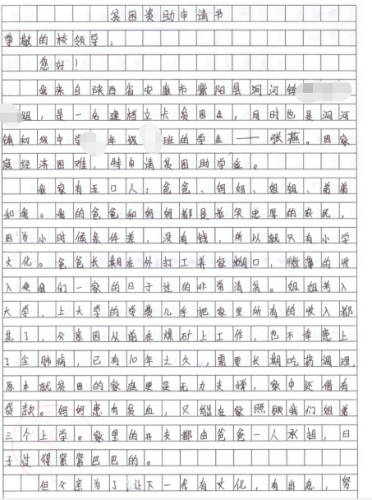 贫困资助申请书
尊敬的校领导：
您好！
我来自陕西省安康市紫阳县洞河镇
组，是一名建档立卡贫困生，同时也是洞河
镇初级中学 年级 班的学生——张燕。因家
庭经济困难，特申请贫困助学金。
我家有五口人：爸爸、妈妈、姐姐、弟弟
和我。我的爸爸和妈妈都是老实忠厚的农民，
因为小时候条件差，没有钱，所以就只有小学
文化。爸爸长期在外打工养家糊口，微薄的收
入使我们一家的日子过的非常清贫。姐姐考入
大学，上大学的学费几乎把家里所有的收入都
花了，父亲因从前在煤矿上工作，也不幸患上
了尘肺病，已有10年之久，需要长期吃药调理，
原本就贫困的家庭更是无力支撑，家中还借有
贷款 妈妈患有贫血，只能在家照顾我们姐弟
三个上学。家里的开支都由爸爸一人承担，日
子过得紧紧巴巴的。
但父亲为了让下一代有文化，有出息，努